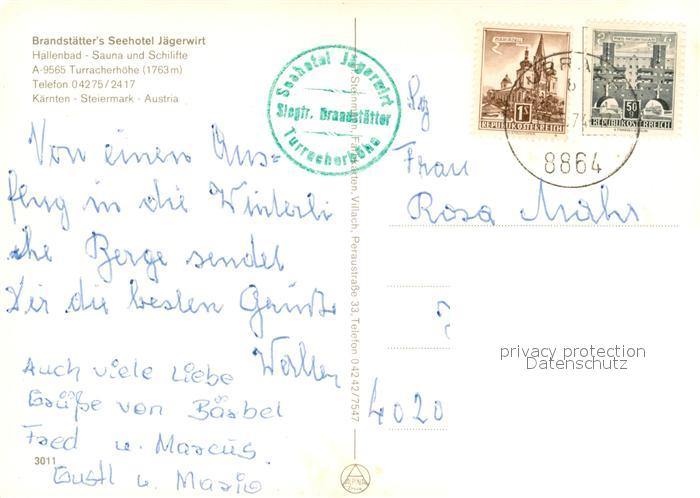 Brandstätter's Seehotel Jägerwirt
Hallenbad - Sauna und Schilifte
A-9565 Turracherhöhe (1763 m)
Telefon 04275/2417
Kärnten - Steiermark - Austria
Seehotel Jägerwirt
Siegfr. Brandstätter
Turracherhöhe
Von einem Aus=
flug in die Winterli
che Berge sendet
Dir die besten Grüße
Walter
Auch viele Liebe
Grüße von Bärbel
Fred u. Marcus.
Gustl u. Mario
3011
Steinmann, Farbkarten, Villach, Peraustraße 33, Telefon 04242/7547
MARIAZELL
1S
REPUBLIK ÖSTERREICH
50
REPUBLIK ÖSTERREICH
74
8864
Frau
Rosa Mahr
4020
privacy protection
Datenschutz